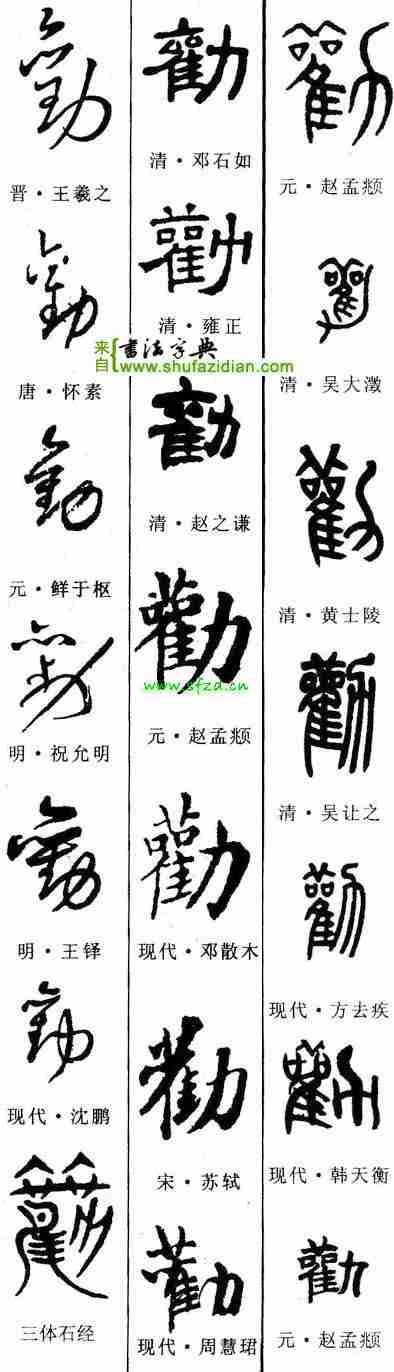 勸
晋·王羲之
勸
唐·怀素
勸
元·鲜于枢
勸
明·祝允明
勸
明·王铎
勸
现代·沈鹏
勸
三体石经
勸
清·邓石如
勸
清·雍正
来自 書法字典
www.shufazidian.com
勸
清·赵之谦
勸
www.sfzd.cn
元·赵孟頫
勸
现代·邓散木
勸
宋·苏轼
勸
现代·周慧珺
勸
元·赵孟頫
勸
清·吴大澂
勸
清·黄士陵
勸
清·吴让之
勸
现代·方去疾
勸
现代·韩天衡
勸
元·赵孟頫